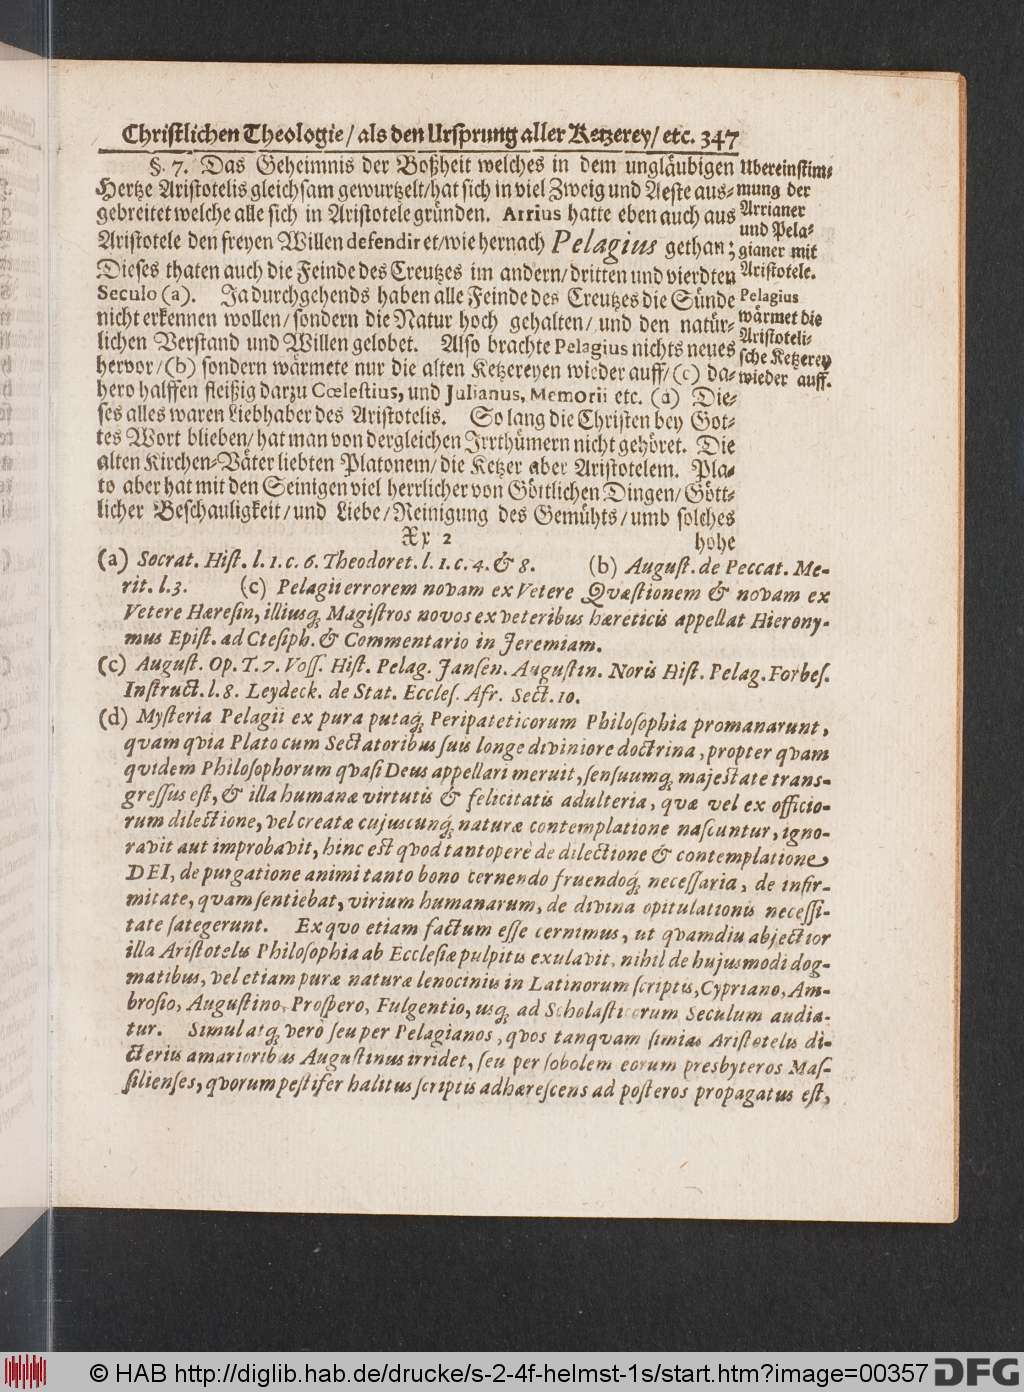 Christlichen Theologie/ als den Ursprung aller Ketzerey/ etc. 347
§. 7. Das Geheimnis der Boßheit welches in dem ungläubigen
Hertze Aristotelis gleichsam gewurtzelt/hat sich in viel Zweig und Aeste aus-
gebreitet welche alle sich in Aristotele gründen. Arrius hatte eben auch aus
Aristotele den freyen Willen defendiret/wie hernach Pelagius gethan;
Dieses thaten auch die Feinde des Creutzes im andern/dritten und vierdten
Seculo (a). Ja durchgehends haben alle Feinde des Creutzes die Sünde
nicht erkennen wollen/ sondern die Natur hoch gehalten/ und den natür-
lichen Verstand und Willen gelobet. Also brachte Pelagius nichts neues
hervor/(b) sondern wärmete nur die alten Ketzereyen wieder auff/(c) da-
hero halffen fleißig darzu Cœlestius, und Julianus, Memorii etc. (d) Die-
ses alles waren Liebhaber des Aristotelis. So lang die Christen bey Got-
tes Wort blieben/ hat man von dergleichen Irrthümern nicht gehöret. Die
alten Kirchen-Väter liebten Platonem/ die Ketzer aber Aristotelem. Pla-
to aber hat mit den Seinigen viel herrlicher von Göttlichen Dingen/ Gött-
licher Beschauligkeit/und Liebe/Reinigung des Gemühts/umb solches
Xx 2 hohe
Ubereinstim-
mung der
Arrianer
und Pela-
gianer mit
Aristotele.
Pelagius
wärmet die
Aristoteli-
sche Ketzerey
wieder auff.
(a) Socrat. Hist. l. 1. c. 6. Theodoret. l. 1. c. 4. & 8. (b) August. de Peccat. Me-
rit. l. 3. (c) Pelagii errorem novam ex Vetere Qvæstionem & novam ex
Vetere Hæresin, illiusq; Magistros novos ex veteribus hæreticis appellat Hierony-
mus Epist. ad Ctesiph. & Commentario in Jeremiam.
(c) August. Op. T. 7. Voss. Hist. Pelag. Jansen. Augustin. Noris Hist. Pelag. Forbes.
Instruct. l. 8. Leydeck. de Stat. Eccles. Afr. Sect. 10.
(d) Mysteria Pelagii ex pura putaq; Peripateticorum Philosophia promanarunt,
qvam qvia Plato cum Sectatoribus suis longe diviniore doctrina, propter qvam
qvidem Philosophorum qvasi Deus appellari meruit, sensuumq; majestate trans-
gressus est, & illa humanæ virtutis & felicitatis adulteria, qvæ vel ex officio-
rum dilectione, vel creatæ cujuscunq; naturæ contemplatione nascuntur, igno-
ravit aut improbavit, hinc est qvod tantoperè de dilectione & contemplatione
DEI, de purgatione animi tanto bono cernendo fruendoq; necessaria, de infir-
mitate, qvam sentiebat, virium humanarum, de divina opitulationis necessi-
tate sategerunt. Ex qvo etiam factum esse cernimus, ut qvamdiu abjectior
illa Aristotelis Philosophia ab Ecclesiæ pulpitis exulavit, nihil de hujusmodi dog-
matibus, vel etiam puræ naturæ lenociniis in Latinorum scriptis, Cypriano, Am-
brosio, Augustino, Prospero, Fulgentio, usq; ad Scholasticorum Seculum audia-
tur. Simul atq; vero seu per Pelagianos, qvos tanqvam simias Aristotelis di-
cteriis amarioribus Augustinus irridet, seu per sobolem eorum presbyteros Mas-
silienses, qvorum pestifer halitus scriptis adhærescens ad posteros propagatus est,
© HAB http://diglib.hab.de/drucke/s-2-4f-helmst-1s/start.htm?image=00357 DFG